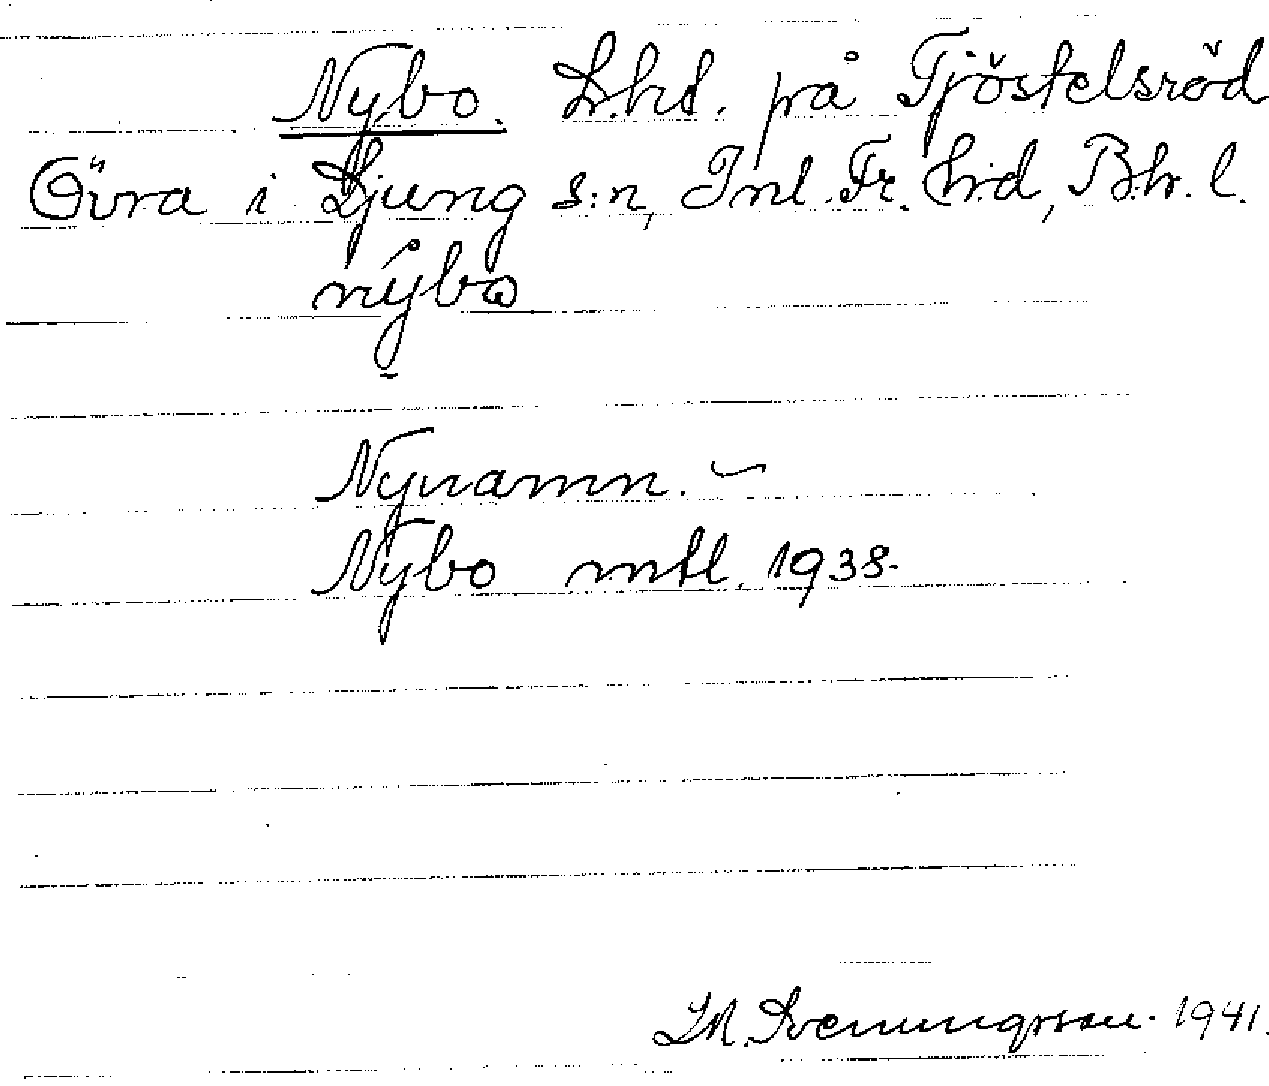 Nybo. L.hd. på Tjöstelsröd
Övra i Ljung s:n, Inl. Fr. hrd, Bh. l.
nybo
Nynamn.
Nybo mtl. 1938.
Sveningsson. 1941.